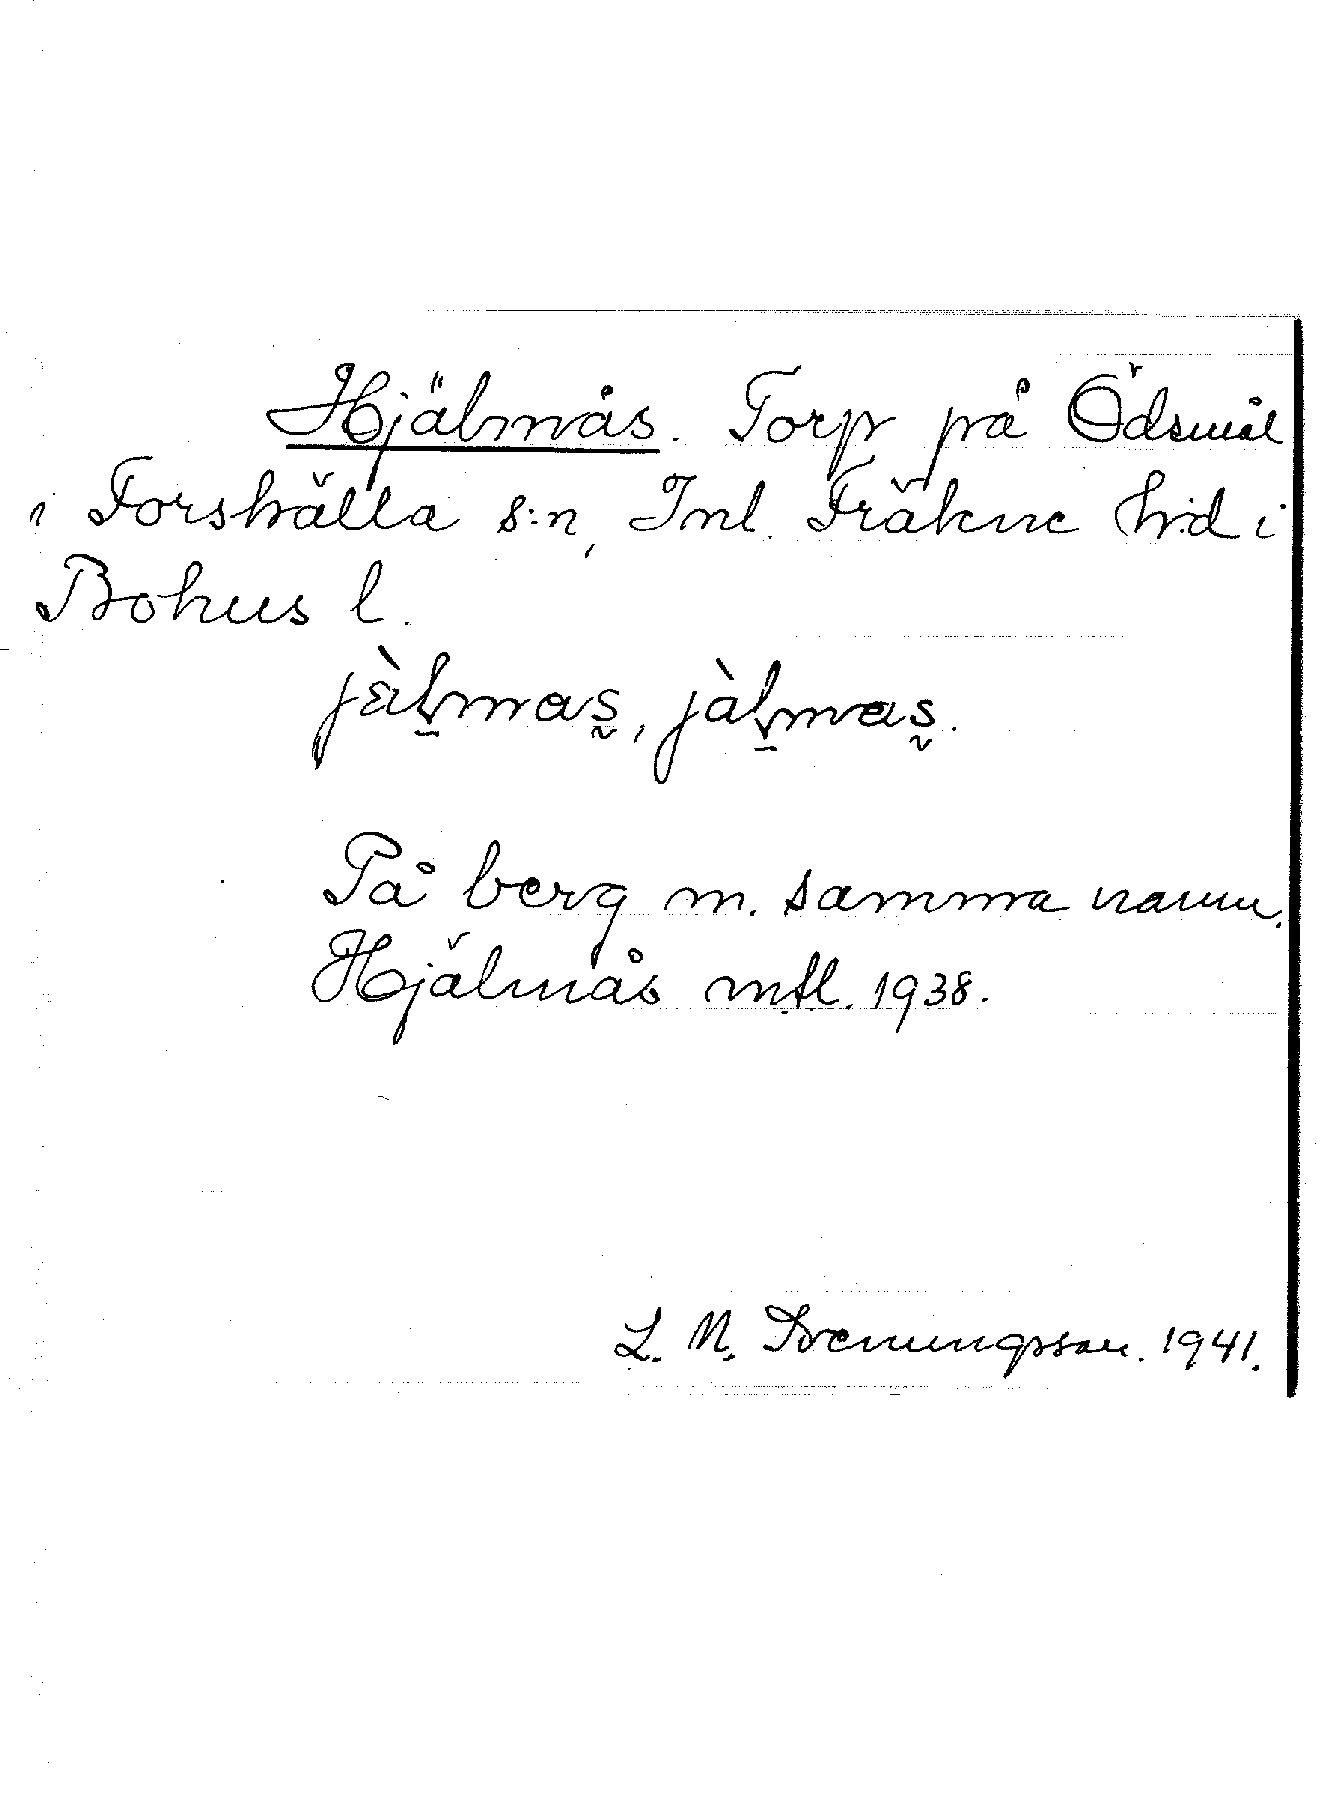 Hjälmås. Torp på Ödsmål
i Forshälla s:n, Inl. Fräkne h:d i
Bohus l.
jàl̠mas̰, jàl̠mas̰.
På berg m. samma namn.
Hjälmås mtl. 1938.
L. N. 1941.